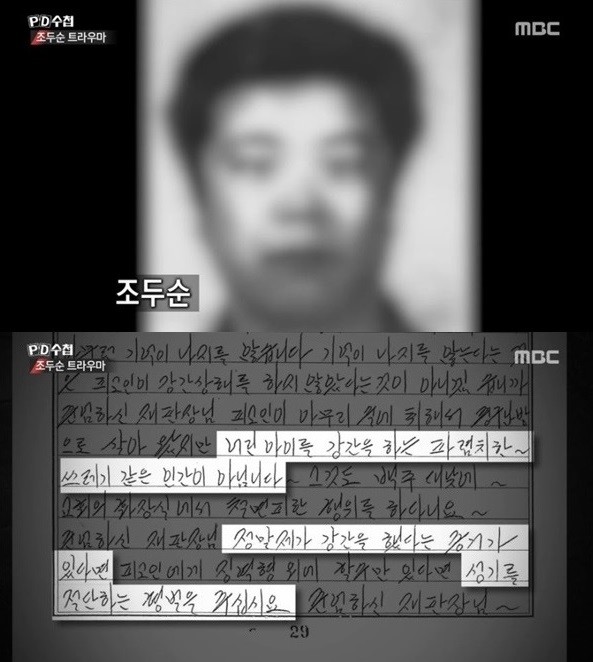 PD수첩
조두순 트라우마
MBC
조두순
PD수첩
조두순 트라우마
MBC
기억이 나지를 않습니다 기억이 나지를 않는다는 것
은 피고인이 강간상해를 하지 않았다는것이 아니겠습니까
재판장님 피고인이 아무리 술에 취해서
으로 살아 왔지만 어린 아이를 강간을 하는 파렴치한~
쓰레기 같은 인간이 아닙니다~ 그것도 백주 대낮에~
교회의 화장실에서 철면피한 행위를 하다니요~
재판장님 정말제가 강간을 했다는 증거가
있다면 피고인에게 징역형 외에 할수만 있다면 성기를
절단하는 형벌을 주십시요 재판장님~
29